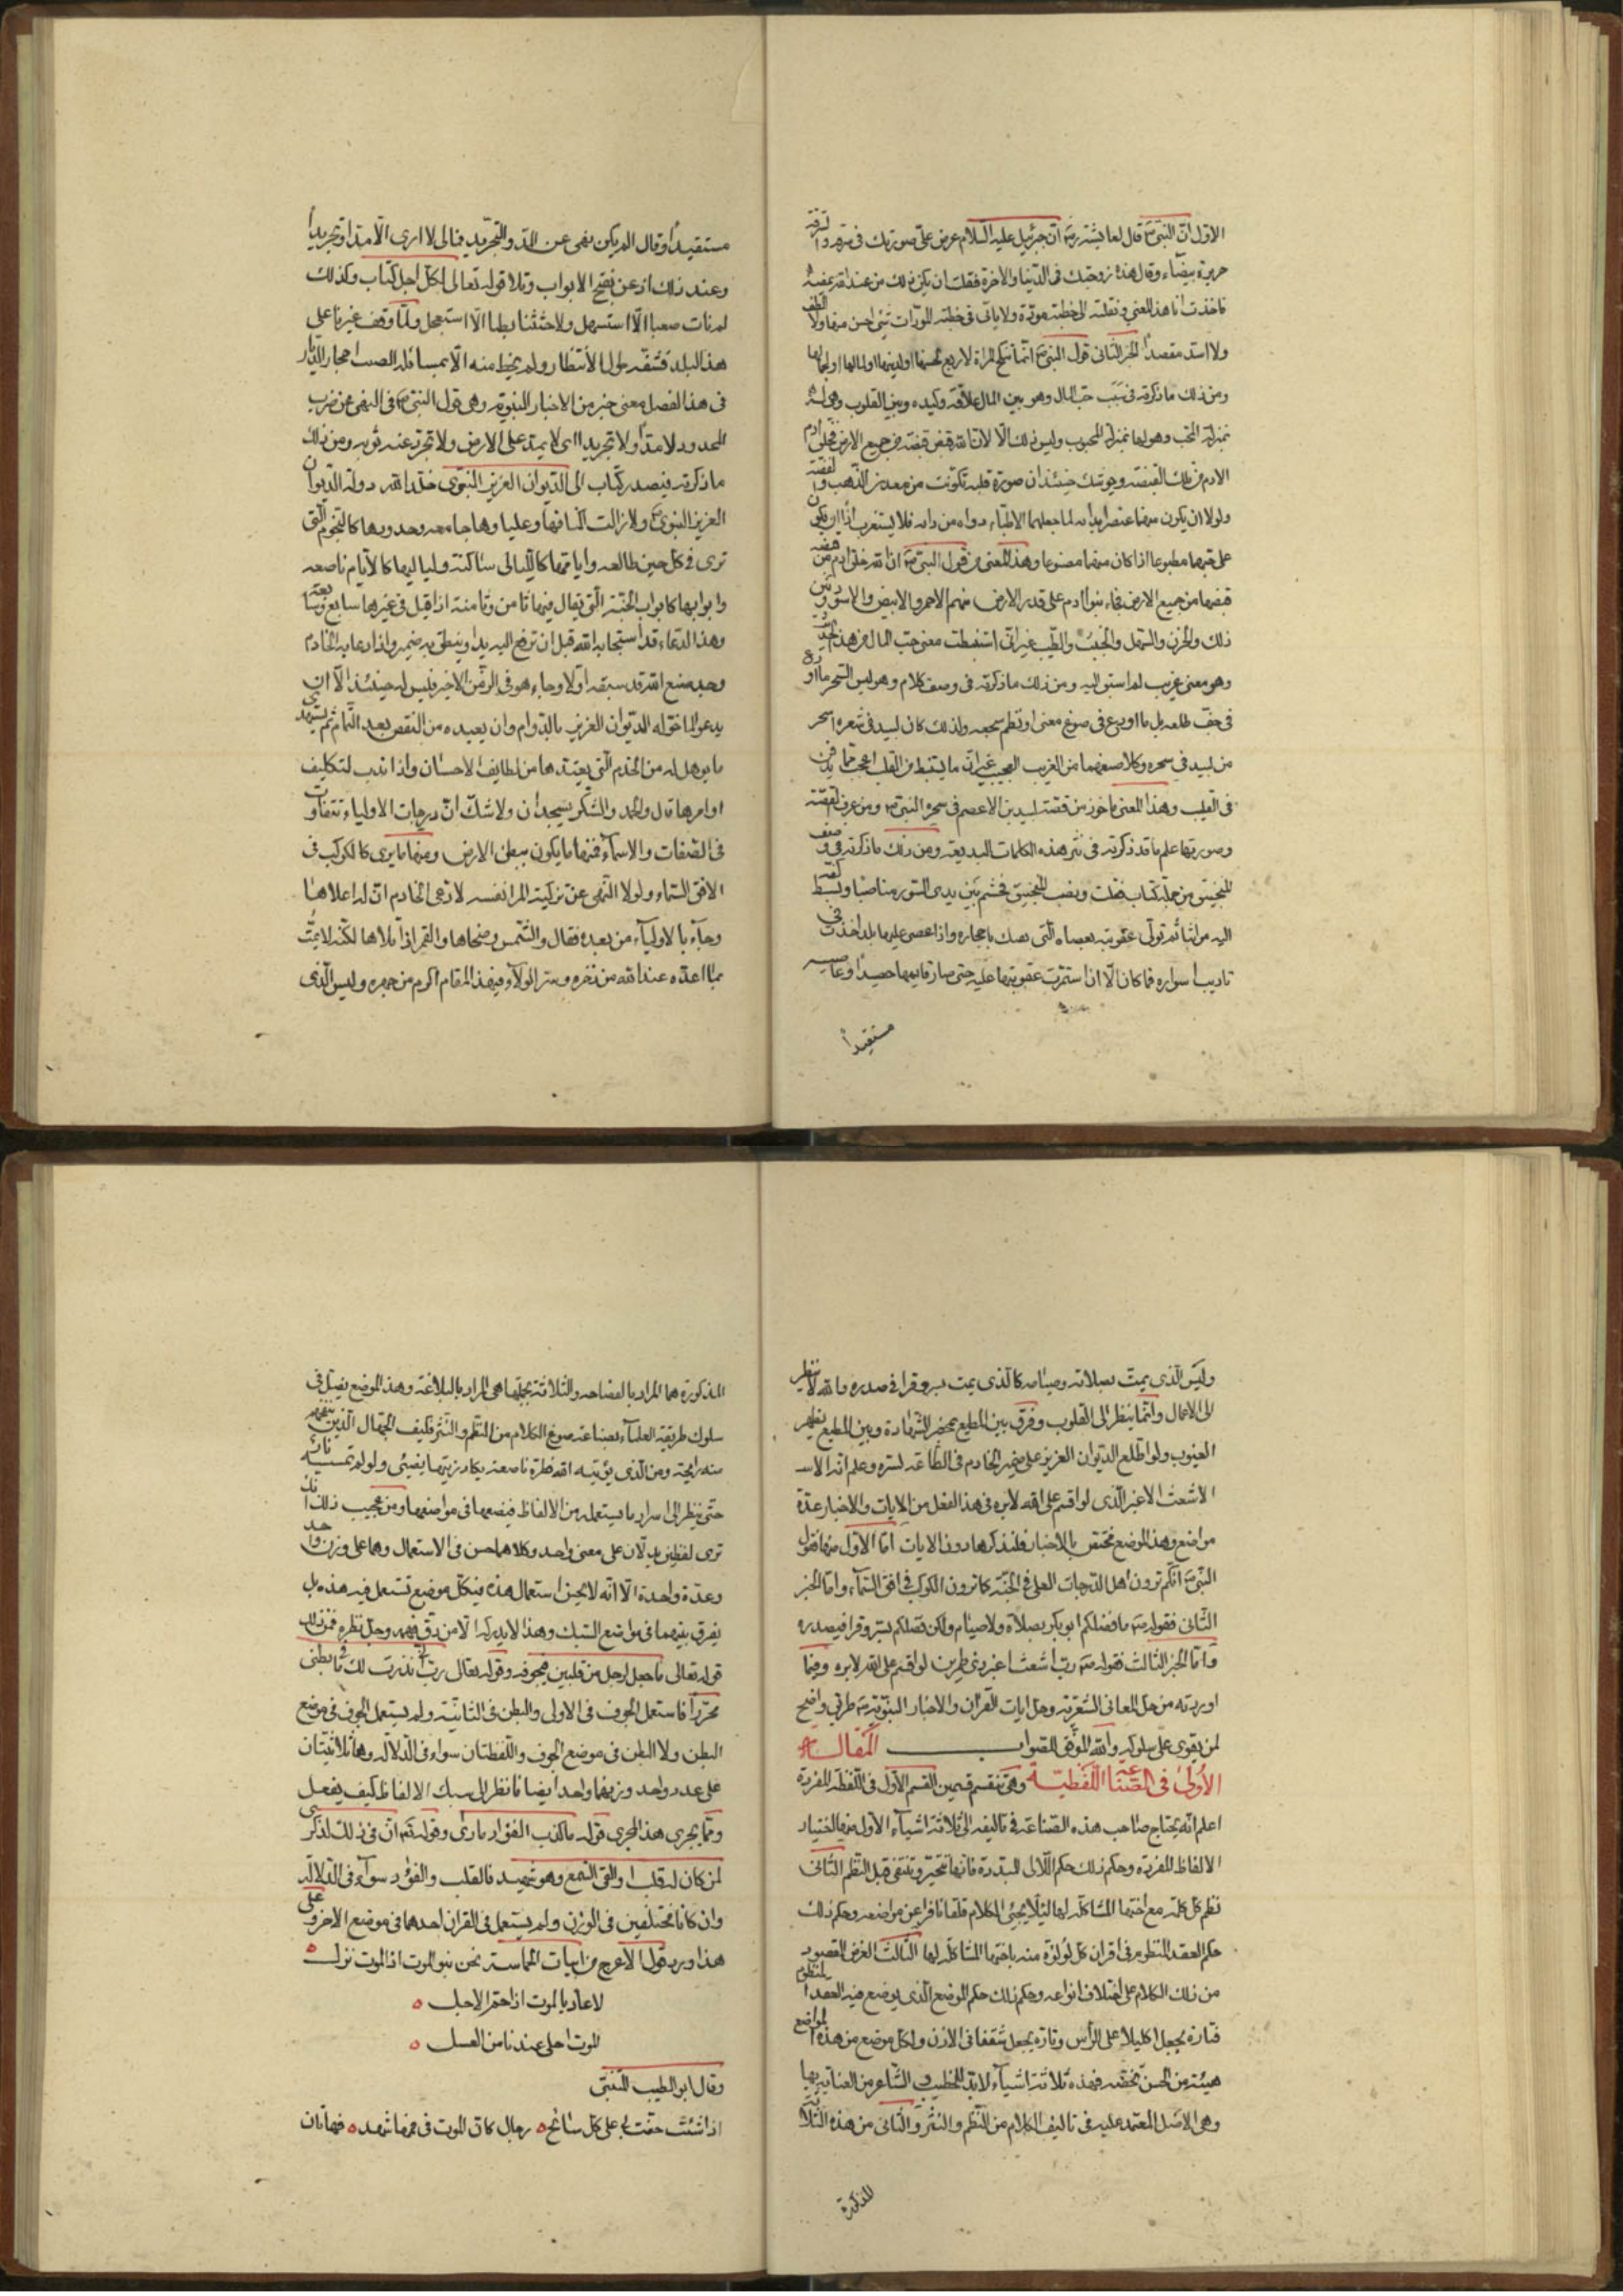 الاول انّ النبيّ قال لعايشة انّ جبرئيل عليه السلام عرض عليّ صورتك في سرقة
حريرة بيضاء وقال هذه زوجتك في الدّنيا والاخرة فقلت ان يكن ذلك من عند الله يمضه
فاخذت انا هذا المعنى ونقلته الى خطبة مودّة ولا ياتي في خطبة المودّات شئ احسن منها ولا الطف
ولا اسد مقصداً الخبر الثاني قول النبيّ انّما تنكح المراة لاربع لحسنها ولدينها ولمالها
ومن ذلك ما ذكرته في سبب حبّ المال وهو بين المال علاقة وكيده وبين القلوب وهي له
بمنزلة المحب وهو لها بمنزلة المحبوب وليس ذلك الّا لانّ الله قبض قبضة من جميع الارض فخلق ادم
الادم من تلك القبضة ويوشك حينئذ ان صورة قلبه تكوّنت من معدن الذّهب والفضة
ولولا ان يكون منهما عنصراً بدا به لما جعلهما الاطبّاء دواه من دائه فلا يستغرب اذاً ان يكون
على حبّهما مطبوعا اذا كان منهما مصنوعا وهذا المعنى من قول النبيّ انّ الله خلق ادم من قبضة
قبضها من جميع الارض فجاء بنو ادم على قدر الارض منهم الاحمر والابيض والاسود وبين
ذلك والحزن والسّهل والخبث والطّيب غير انّي استنبطت معنى حبّ المال من هذا
وهو معنى غريب لم اسبق اليه ومن ذلك ما ذكرته في وصف كلام وهو ليس السّحر ما اودع
في جفّ طلعه بل ما اودع في صوغ معنى او نظم سجعه ولذلك كان لبيد في شعره اسحر
من لبيد في سحره وكلاهما من الغريب العجيب غير انّ ما يستنبط من القلب اعجب ممّا يدفن
في القليب وهذا المعنى ماخوذ من قصّة لبيد بن الاعصم في سحره النبيّ ومن عرف القصّة
وصورتها علم ما قد ذكرته في نثر هذه الكلمات البديعة ومن ذلك ما ذكرته في وصف
المنجنيق من جملة كتاب فقلت ونصب المنجنيق فجثم بين يدي السّور مناصبا وبسط كفّه
اليه مواثبا ثم تولّى عقوبته بعصاه الّتي بصك باحجاره واذا عصى عليها بلد اخذت في
تاديب اسواره فما كان الّا ان استمرّت عقوبتها عليه حتى صار قايمها حصيداً
مستقيداً
مستقيداً وقال الم يكن نهى عن المدّ والتّجريد فمالى لا ارى الّا مدّاً وتجريداً
وعند ذلك اذعن بفتح الابواب وتلا قوله تعالى لكل اجل كتاب وكذلك
لم نات صعبا الّا استسهل ولا حثثنا بطيا الّا استعجل ولمّا وقف غيرنا على
هذا البلد فشفّه طول الانتظار ولم يحظ منه الّا بمسائلة الصب احجار الدّيار
في هذا الفصل معنى خبر من الاخبار النبويّة وهي قول النبيّ في النهى عن ضرب
المحدود لا مدّ ولا تجريد اي لا يمد على الارض ولا تجرّد عنه ثوبه ومن ذلك
ما ذكرته في صدر كتاب الى الدّيوان العزيز النبويّ خلّد الله دولة الدّيوان
العزيز النبويّ ولا زالت اكنافها وعليا وها جامعه وجدودها كالنجوم الّتي
ترى في كل حين طالعه وايّامها كالليالي ساكنة ولياليها كالايّام ناصعه
وابوابها كابواب الجنّة الّتي يقال فيها ثامن وثامنة اذا قيل في غيرها سابع وسابعة
وهذا الدعاء قد استجابه الله قبل ان ترفع اليه يد او ينطق به ضمير واذا دعا به الخادم
وجد صنع الله قد سبقه اولا وجاء هو في الزّمن الاخير فليس له حينئذ الّا ان
يدعو لما خوّله الدّيوان العزيز بالدّوام وان يعيده من النقص بعد التّمام ثم يستزيد
ما يوهل له من الخدم الّتي يعتدّها من لطايف الاحسان واذا ندب لتكليف
اوامرها قال والحمد والشّكر يسجدان ولا شكّ انّ درجات الاولياء تتفاوت
في الصّفات والاسماء فمنها ما يكون ببطن الارض ومنها ما يرى كالكوكب في
الافق السّماء ولولا النّهى عن تزكية المرء نفسه لادّعى الخادم انّ له اعلاها
وجاء بالاولياء من بعده فقال والشّمس وضحاها والقمر اذا تلاها لكنّه لا يمتّ
بما اعدّه عند الله من ذخره وسرّ الولاء في هذا المقام اكرم من جهره وليس الّذي
وليس الّذي يمتّ بصلاته وصيامه كالّذي يمت بسر وقر في صدره والله لا ينظر
الى الاعمال وانّما ينظر الى القلوب وفرق بين المطيع بمحضر الشّهادة وبين المطيع بظهر
الغيوب ولو اطّلع الدّيوان العزيز على ضمير الخادم في الطّاعة لسره وعلم انه الا
الاشعث الاغبر الّذي لو اقسم على الله لابره في هذا الفصل من الايات والاخبار عدّة
مواضع وهذا الموضع مختص بالاخبار فلنذكرها دون الايات امّا الاوّل منها فقول
النّبيّ انّكم ترون اهل الدّرجات العلى في الجنّة كما ترون الكوكب في افق السّماء وامّا الخبر
الثّاني فقوله ما فضلكم ابو بكر بصلاة ولا صيام ولكن فضلكم بسرّ وقر في صدره
وامّا الخبر الثالث فقوله رب اشعث اغبر ذي طمرين لو اقسم على الله لابره وفيما
اوردته من حل المعاني الشّعريّة وحل ايات القران والاخبار النبويّة طريق واضح
لمن يقوى على سلوكه والله الموفّق للصواب المقالة
الأولى في الصّناعة اللّفظيّة وهي تنقسم قسمين القسم الاوّل في اللّفظة المفردة
اعلم انّه يحتاج صاحب هذه الصّناعة في تاليفه الى ثلاثة اشياء الاول منها اختيار
الالفاظ المفردة وحكم ذلك حكم اللّالي المبدّدة فانها تتخيّر وتنتقى قبل النّظم الثّاني
نظم كل كلمة مع اختها المشاكلة لها لئلّا يجيئ الكلام قلقا نافرا عن مواضعه وحكم ذلك
حكم العقد المنظوم في اقران كل لؤلؤة منه باختها المشاكلة لها الثّالث الغرض المقصود
من ذلك الكلام على اختلاف انواعه وحكم ذلك حكم الموضع الّذي يوضع فيه العقد المنظوم
فتارة يجعل اكليلا على الرّأس وتارة يجعل شنفا في الاذن ولكل موضع من هذه المواضع
هيئة من الحسن تخصّه فهذه ثلاثة اشياء لا بدّ للخطيب والشّاعر من العناية بها
وهي الاصل المعتمد عليه في تاليف الكلام من النّظم والنّثر والثّاني من هذه الثّلاثة
المذكورة
المذكورة هما المراد بالفصاحه والثلاثة بجملتها هي المراد بالبلاغة وهذا الموضع يضل في
سلوك طريقه العلماء بصناعة صوغ الكلام من النّظم والنّثر فكيف الجهّال الّذين
منه رايحة ومن الّذي يؤتيه الله فطرة ناصعة يكاد زيتها يضيئ ولو لم تمسسه نار
حتى ينظر الى اسرار ما يستعمله من الالفاظ فيضعها في مواضعها ومن عجيب ذلك انك
ترى لفظين يدلّان على معنى واحد وكلاهما حسن في الاستعمال وهما على وزن واحد
وعدّة واحدة الّا انّه لا يحسن استعمال هذه في كل موضع تستعمل فيه هذه بل
يفرق بينهما في مواضع السّبك وهذا لا يدركه الّا من دق فهمه وجلّ نظره فمن ذلك
قوله تعالى ما جعل لرجل من قلبين في جوفه وقوله تعالى رب اني نذرت لك ما في بطني
محرّراً فاستعمل الجوف في الاولى والبطن في الثانية ولم يستعمل الجوف في موضع
البطن ولا البطن في موضع الجوف واللّفظتان سواء في الدّلالة وهما ثلاثيّتان
على عدد واحد وزنهما واحد ايضا فانظر الى سبك الالفاظ كيف يفعل
وممّا يجري هذا المجرى قوله ما كذب الفؤاد ما راى وقوله انّ في ذلك لذكرى
لمن كان له قلب او القى السّمع وهو شهيد فالقلب والفؤاد سواء في الدّلالة
وان كانا مختلفين في الوزن ولم يستعمل في القران احدهما في موضع الاخر وعلى
هذا ورد قول الاعرج من ابيات الحماسة نحن بنو الموت اذا الموت نزل
لا عار بالموت اذا حمّ الاجل
الموت احلى عندنا من العسل
وقال ابو الطيب المتنبّي
اذا شئت حفّت بي على كل سائح رجال كان الموت في فمها شهد فهاتان